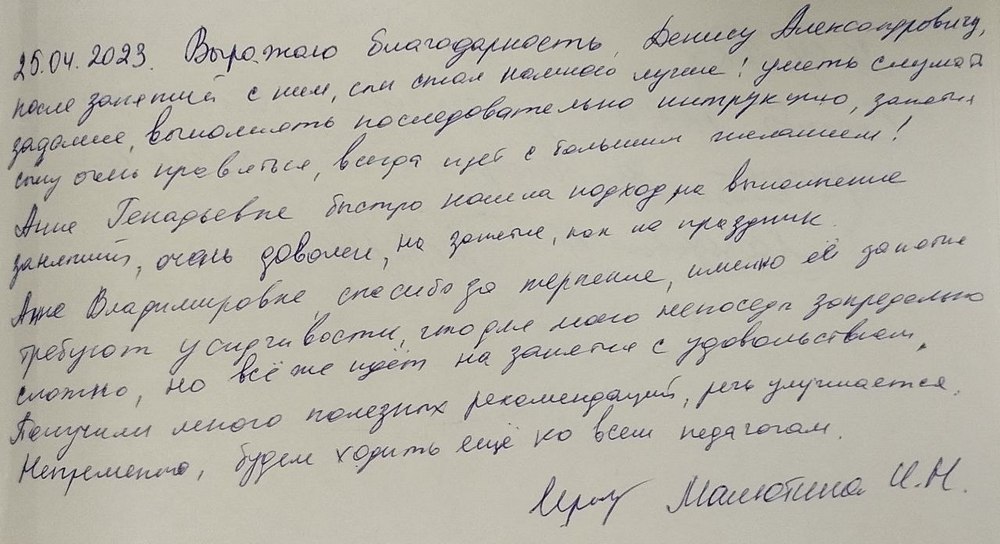 25.04.2023. Выражаю благодарность, Денису Александровичу,
после занятий с ним, сын стал намного лучше! уметь слушать
задание, выполнять последовательно интрукцию, занятия
сыну очень нравяться, всегда идёт с большим желанием!
Анне Генадьевне быстро нашла подход на выполнение
занятий, очень доволен, на занятие, как на праздник.
Анне Владимировне, спасибо за терпение, именно её занятие
требуют усидчивости, что для моего непоседы запредельно
сложно, но всё же идёт на занятия с удовольствием.
Получили много полезных рекомендаций, речь улучшается.
Непременно, будем ходить ещё ко всем педагогам.
Малютина И.Н.